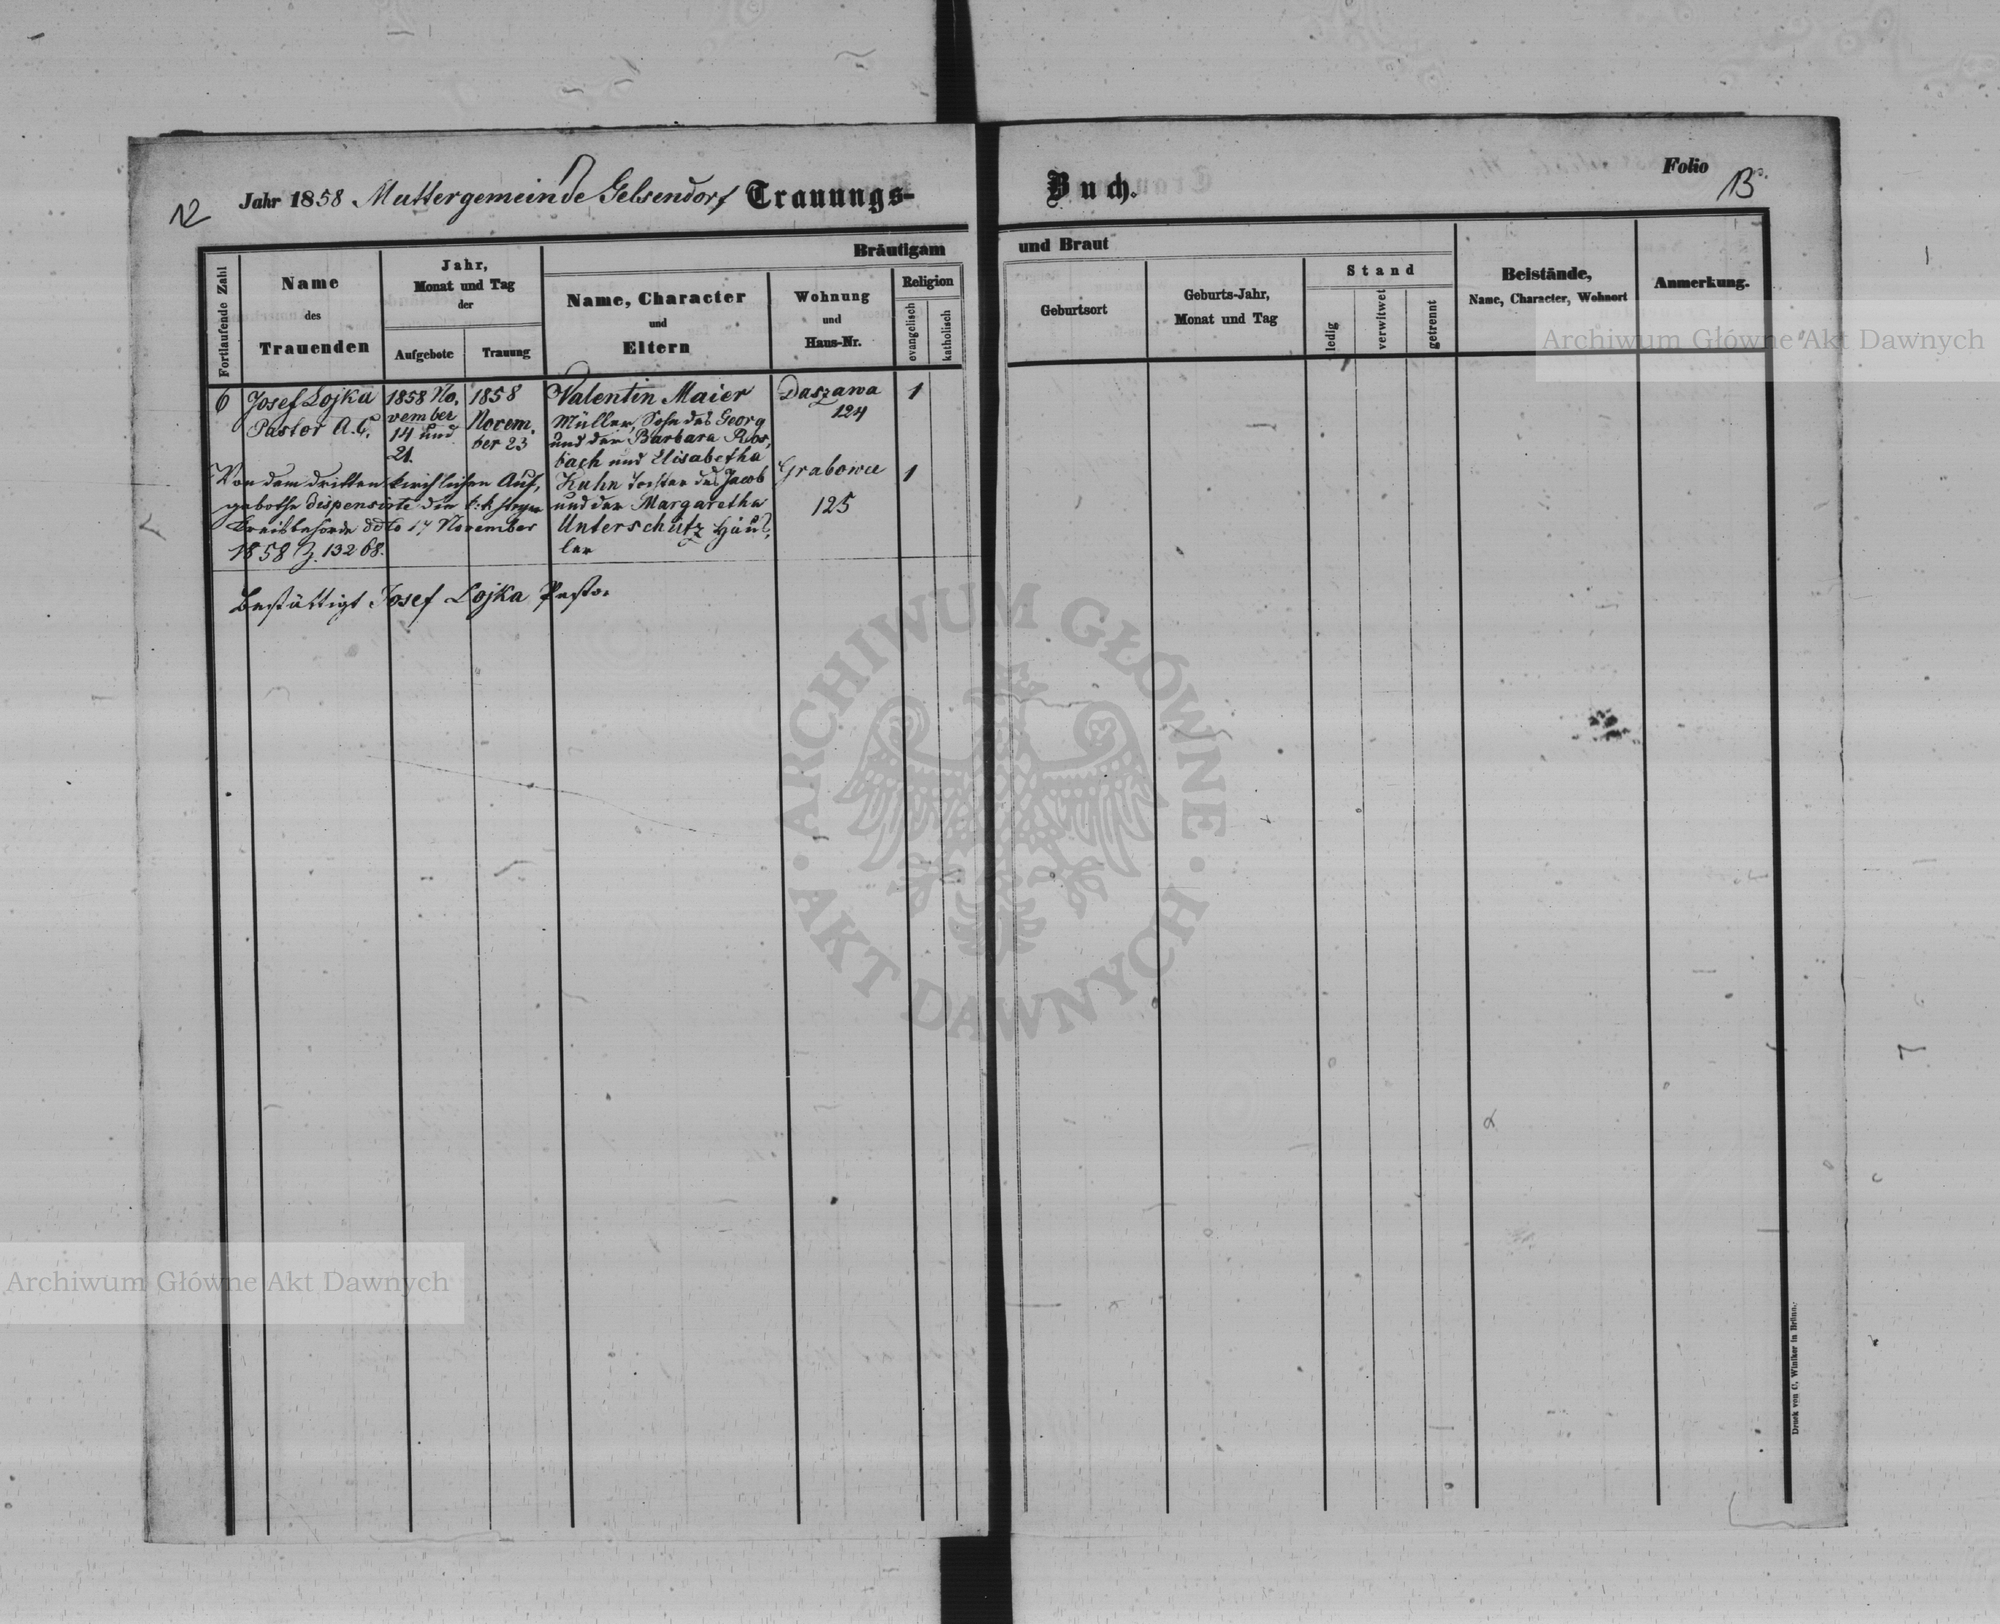 12
Jahr 1858 Muttergemeinde Gelsendorf Trauungs-
Buch.
Folio
13
Fortlaufende Zahl
Name
des
Trauenden
Jahr,
Monat und Tag
der
Aufgebote
Trauung
Bräutigam
Name, Character
und
Eltern
Wohnung
und
Haus-Nr.
Religion
evangelisch
katholisch
und Braut
Geburtsort
Geburts-Jahr,
Monat und Tag
Stand
ledig
verwitwet
getrennt
Beistände,
Name, Character, Wohnort
Anmerkung.
6
Josef Lojka
Pastor A.C.
1858 No,
vember
14 und
21.
1858
Novem,
ber 23
Valentin Maier
Müller, Sohn des Georg
und der Barbara Ros,
bach und Elisabetha
Kuhn Tochter des Jacob
und der Margaretha
Unterschütz Häus,
ler
Daszawa
124
Grabowce
125
1
1
Von dem dritten kirchlichen Auf,
gebothe dispensirte die k: k Stryer
Kreisbehörde ddto 17 November
1858 Z. 13268.
Bestättigt Josef Lojka Pastor
Druck von C. Winiker in Brünn.
Archiwum Główne Akt Dawnych
ARCHIWUM GŁÓWNE
AKT DAWNYCH
Archiwum Główne Akt Dawnych